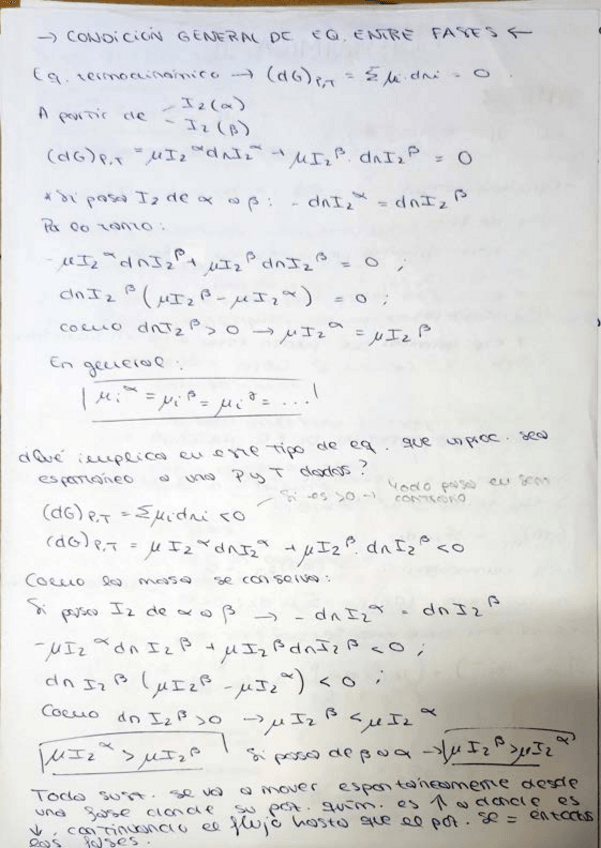 → CONDICIÓN GENERAL DE EQ. ENTRE FASES ←
Eq. termodinámico → (dG)P,T = Σμi dni = 0
A partir de - I2(α)
- I2(β)
(dG)P,T = μI2^α dnI2^α + μI2^β · dnI2^β = 0
* Si pasa I2 de α a β: - dnI2^α = dnI2^β
Por lo tanto:
- μI2^α dnI2^β + μI2^β dnI2^β = 0 ;
dnI2^β (μI2^β - μI2^α) = 0 ;
como dnI2^β > 0 → μI2^α = μI2^β
En general:
μi^α = μi^β = μi^γ = ...
¿Qué implica en este tipo de eq. que un proc. sea
espontáneo a una P y T dadas?
Si es >0 → todo pasa en sen.
contrario
(dG)P,T = Σμi dni < 0
(dG)P,T = μI2^α dnI2^α + μI2^β · dnI2^β < 0
Como la masa se conserva:
Si pasa I2 de α a β → - dnI2^α = dnI2^β
- μI2^α dnI2^β + μI2^β dnI2^β < 0 ;
dnI2^β (μI2^β - μI2^α) < 0 ;
Como dnI2^β > 0 → μI2^β < μI2^α
μI2^α > μI2^β Si pasa de β a α → μI2^β > μI2^α
Toda sust. se va a mover espontáneamente desde
una fase donde su pot. quím. es ↑ a donde es
↓, continuando el flujo hasta que el pot. se = en todas
las fases.